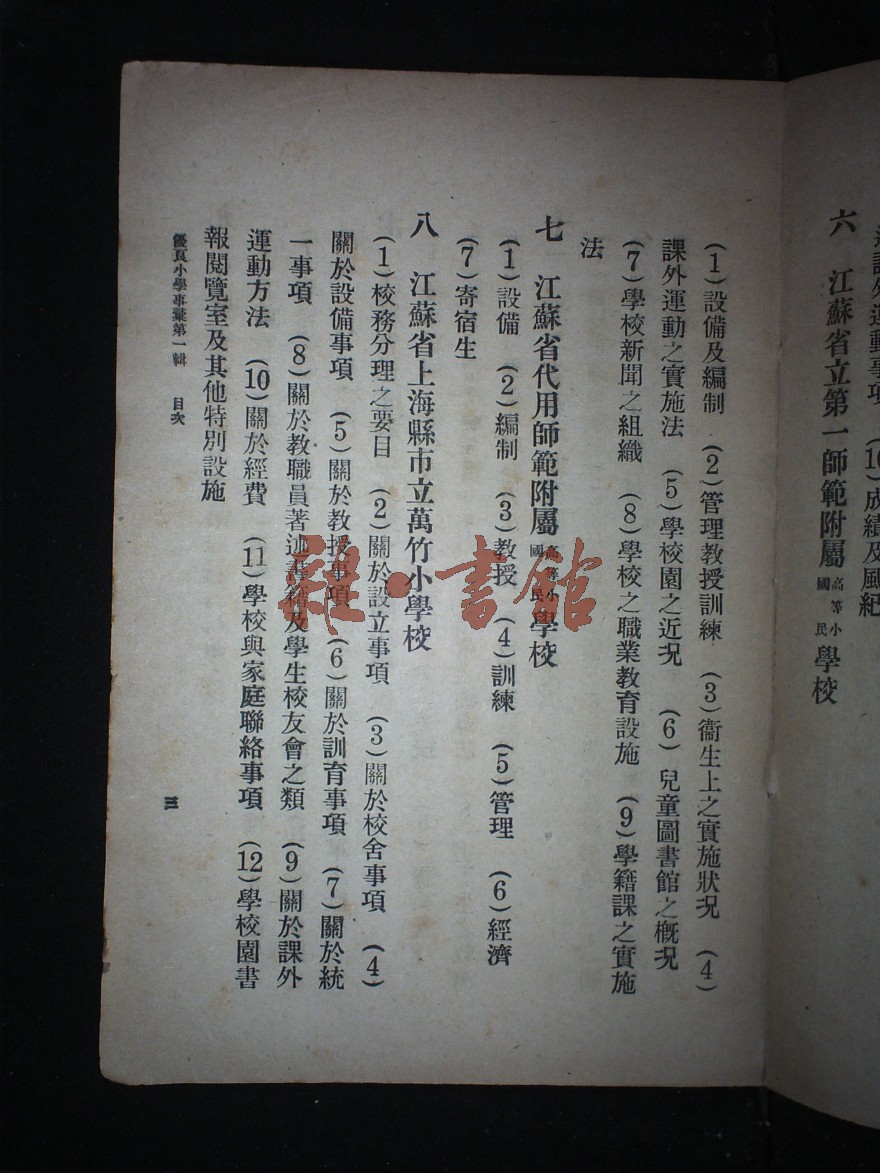 課外運動事項 (10)成績及風紀
六 江蘇省立第一師範附屬高等小國民學校
(1)設備及編制 (2)管理教授訓練 (3)衞生上之實施狀況 (4)
課外運動之實施法 (5)學校園之近況 (6)兒童圖書館之槪況
(7)學校新聞之組織 (8)學校之職業教育設施 (9)學籍課之實施
法
七 江蘇省代用師範附屬高等小國民學校
(1)設備 (2)編制 (3)教授 (4)訓練 (5)管理 (6)經濟
(7)寄宿生
八 江蘇省上海縣市立萬竹小學校
(1)校務分理之要目 (2)關於設立事項 (3)關於校舍事項 (4)
關於設備事項 (5)關於教授事項 (6)關於訓育事項 (7)關於統
一事項 (8)關於教職員著述書籍及學生校友會之類 (9)關於課外
運動方法 (10)關於經費 (11)學校與家庭聯絡事項 (12)學校園書
報閱覽室及其他特別設施
優良小學事彙第一輯 目次
三
雜·書館